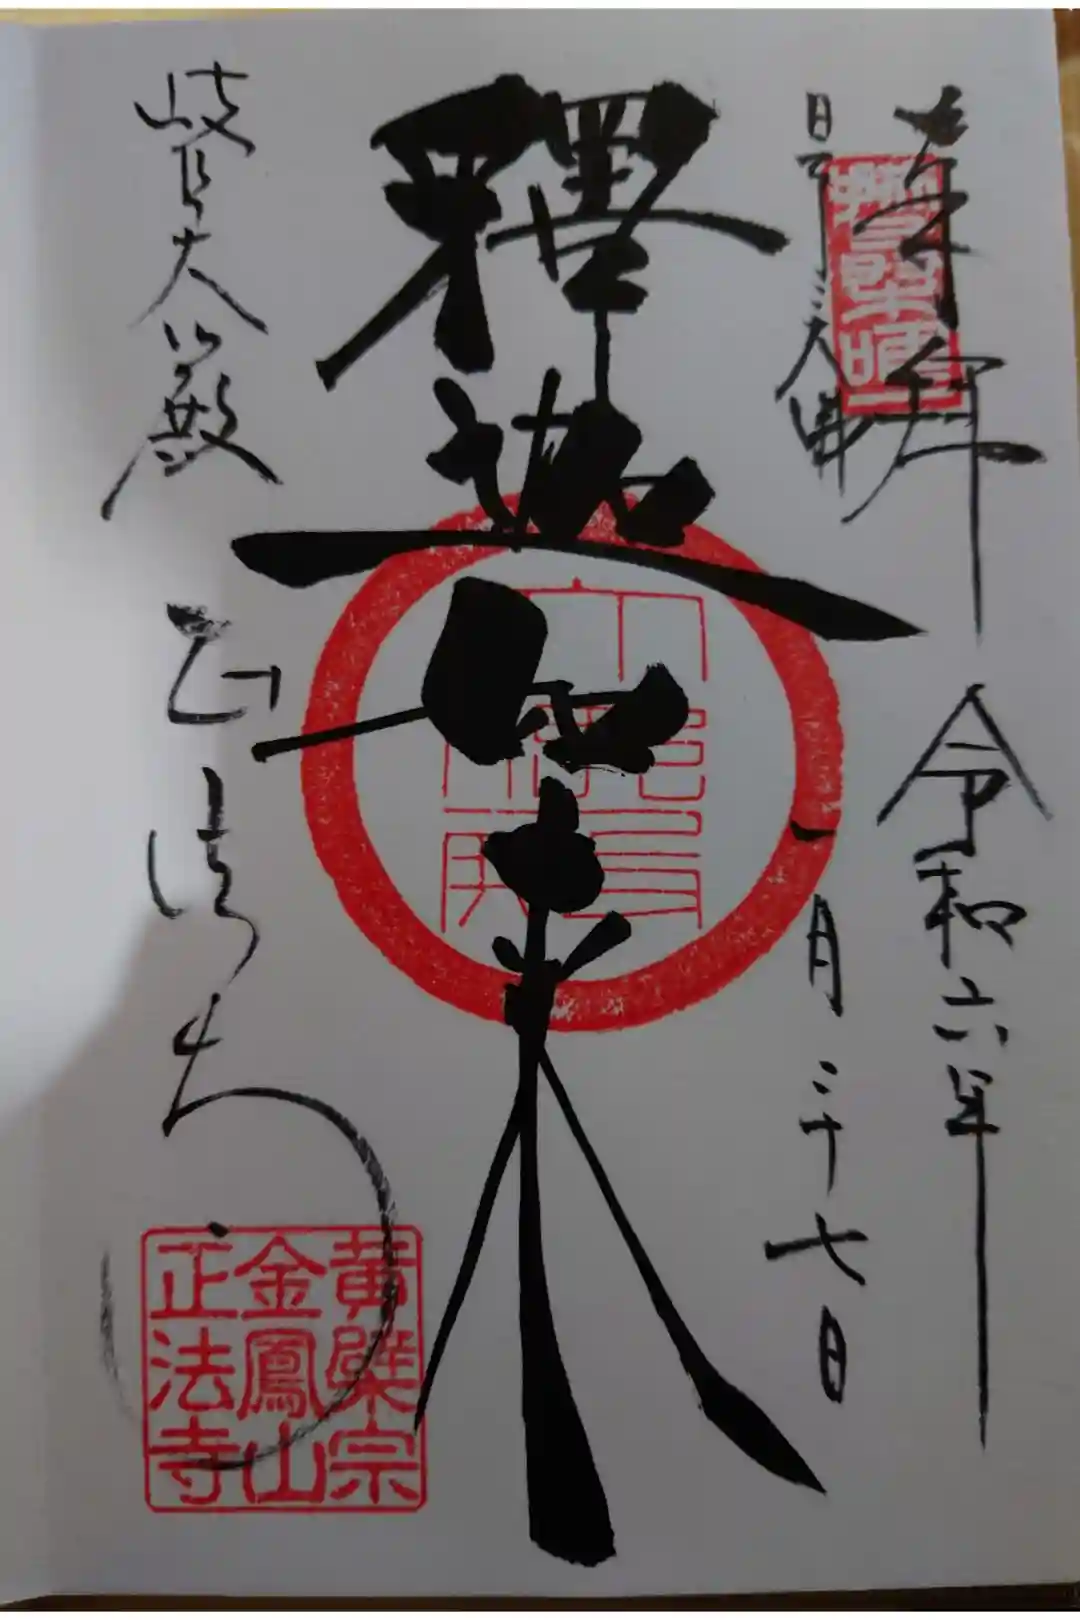 奉拝
令和六年
一月二十七日
日本三大佛
釋迦如来
岐阜大殿
正法寺
黄檗宗
金鳳山
正法寺